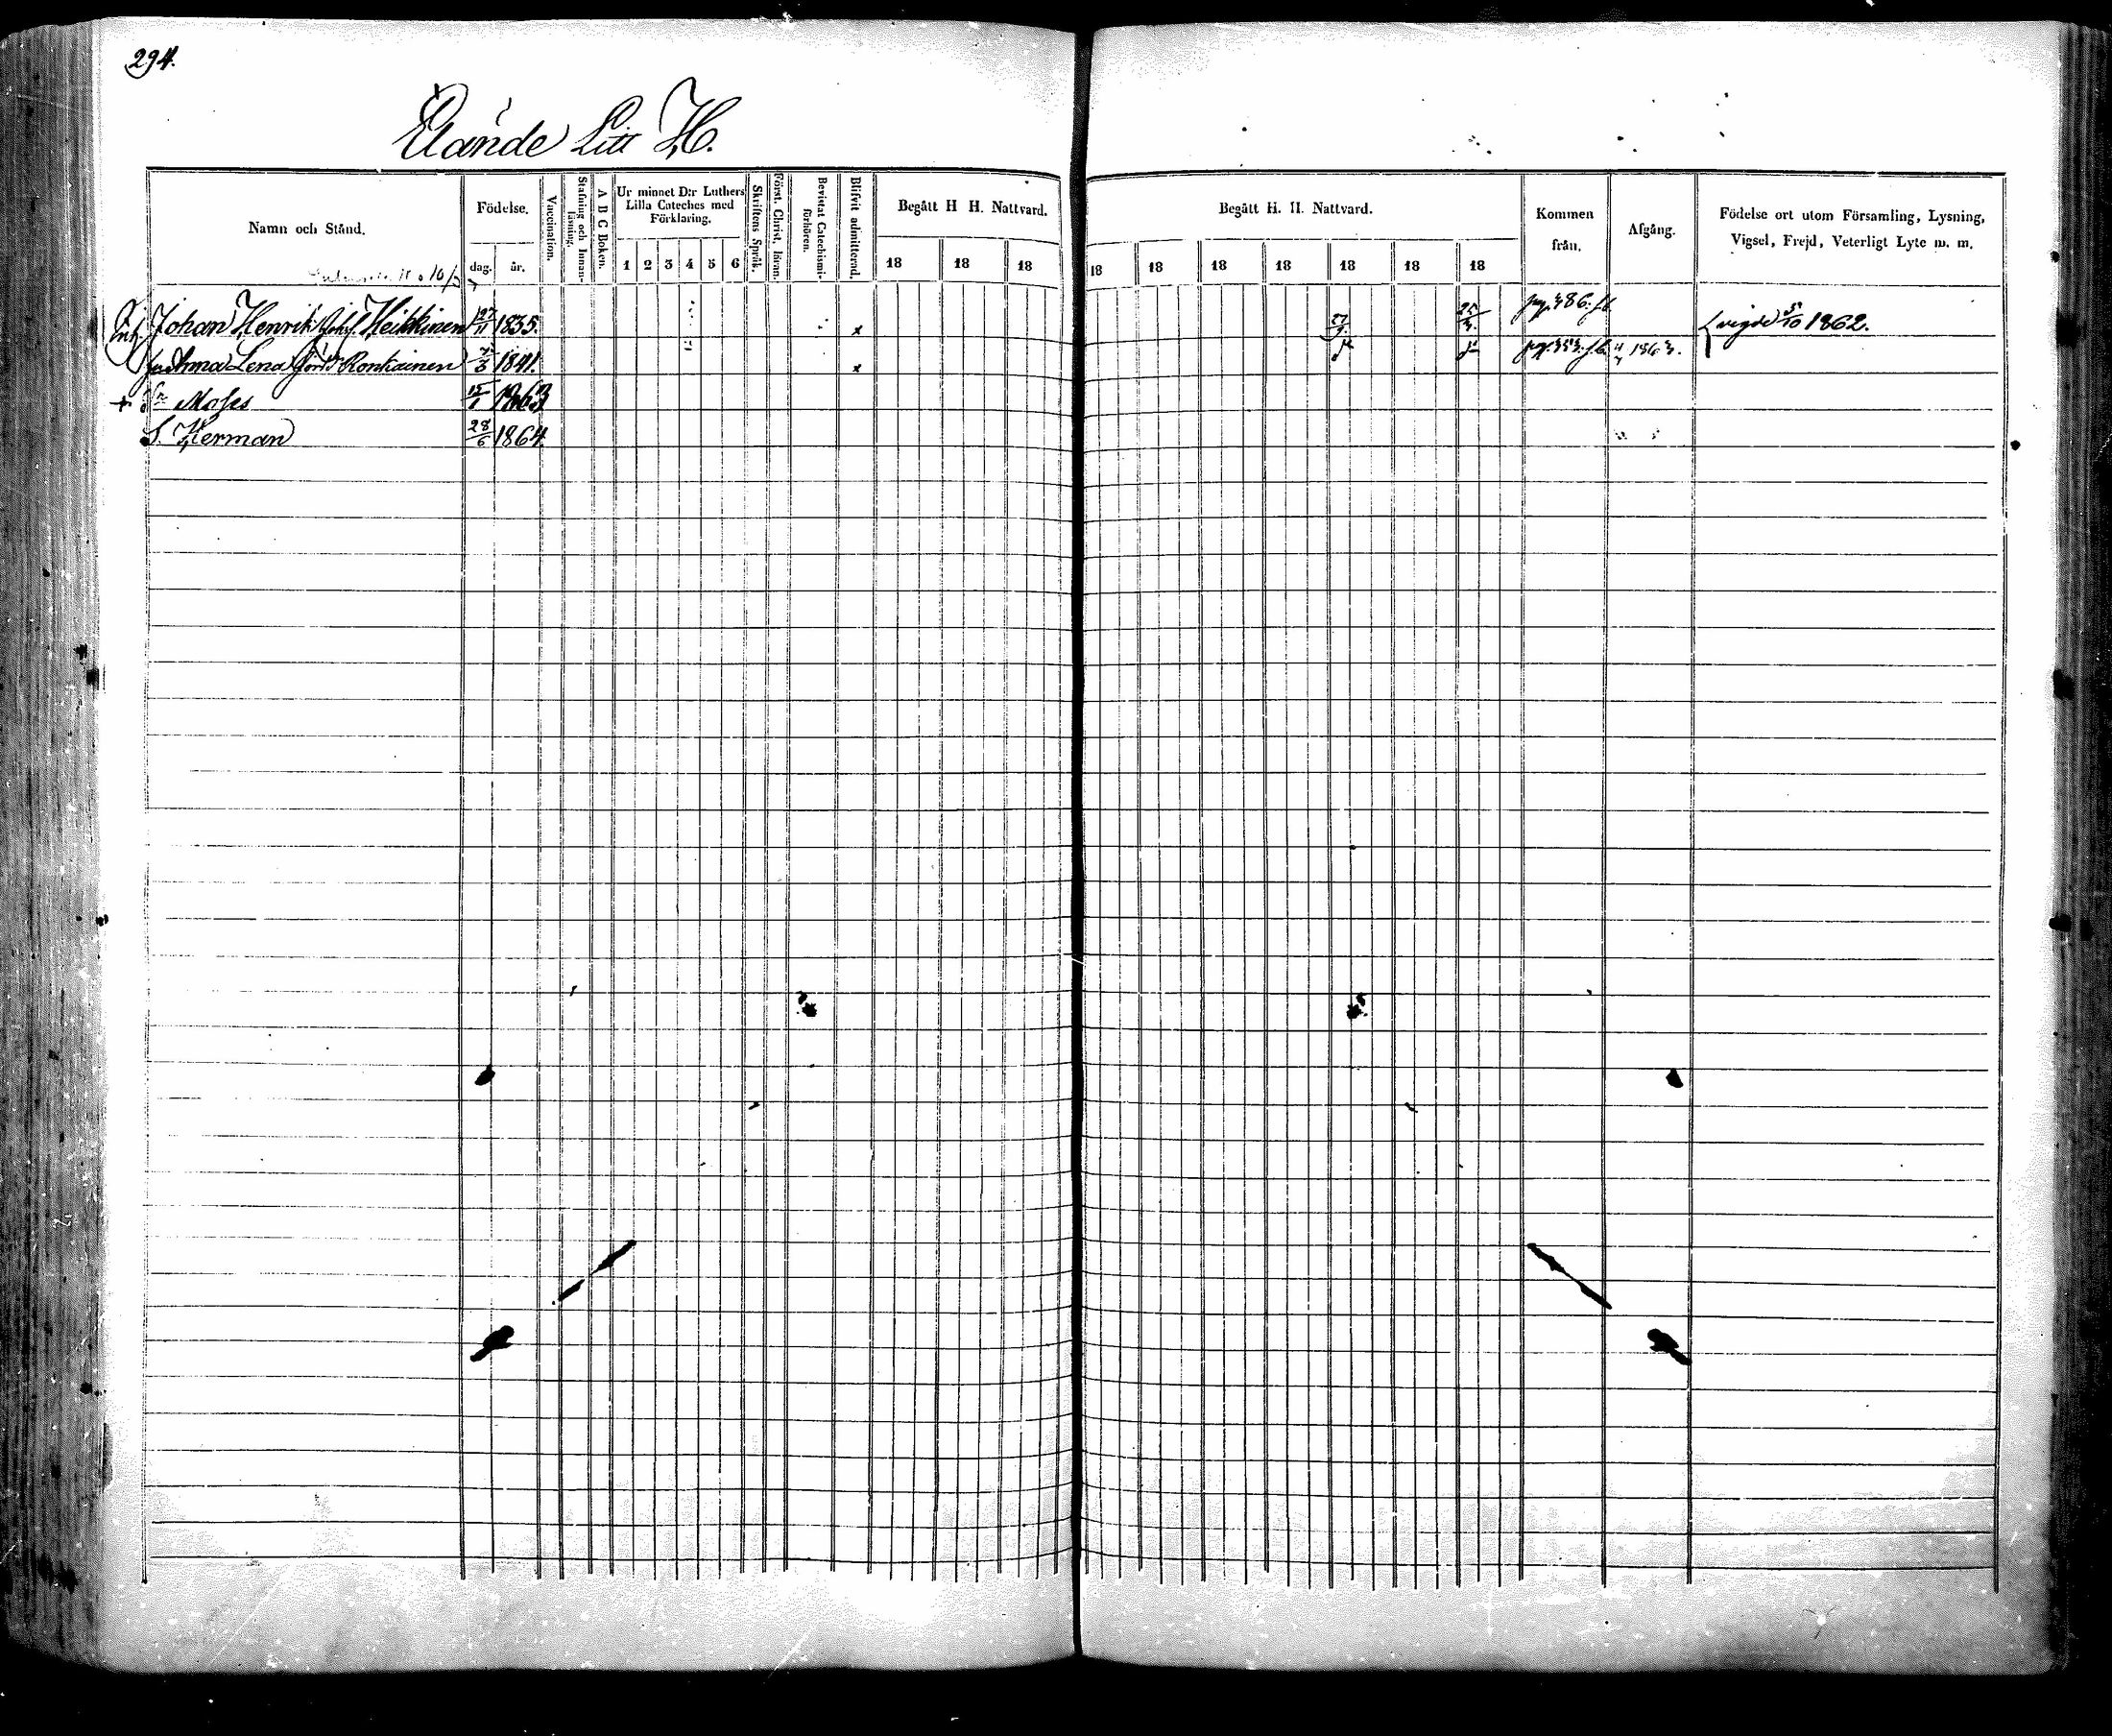 294.
Elände Litt H.
Namn och Stånd.
Födelse.
dag. år.
Vaccination.
Stafning och Innanläsning.
A B C Boken.
Ur minnet D:r Luthers Lilla Cateches med Förklaring.
1 2 3 4 5 6
Skriftens Språk.
Först. Christ. läran.
Bevistat Catechismi-förhören.
Blifvit admitterad.
Begått H H. Nattvard.
18 18 18
Begått H. H. Nattvard.
18 18 18 18 18 18 18
Kommen från.
Afgång.
Födelse ort utom Församling, Lysning, Vigsel, Frejd, Veterligt Lyte m. m.
Johan Henrik Joh.s. Heikkinen 27/11 1835. x 27/9. 25/3. pag. 386. f.b. vigde 5/10 1862.
Anna Lena Ronkainen 1841. x pag. 353. f.b. 1863.
+ Sn Moses 15/1 1863
S. Herman 28/6 1864.